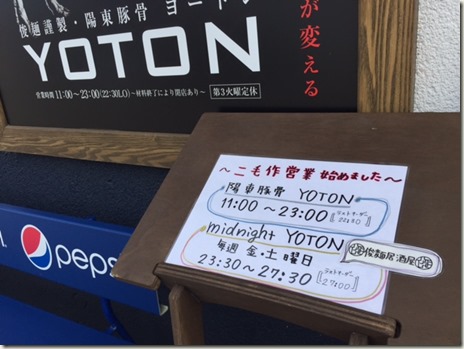 俊麺謹製・陽東豚骨 ヨートン
YOTON
営業時間 11:00～23:00(22:30LO)～材料終了により閉店あり～ 第3火曜定休
が変える
～二毛作営業始めました～
陽東豚骨 YOTON
11:00～23:00
ラストオーダー
22:30
midnight YOTON
毎週 金・土曜日
23:30～27:30
ラストオーダー
27:00
俊麺居酒屋
peps